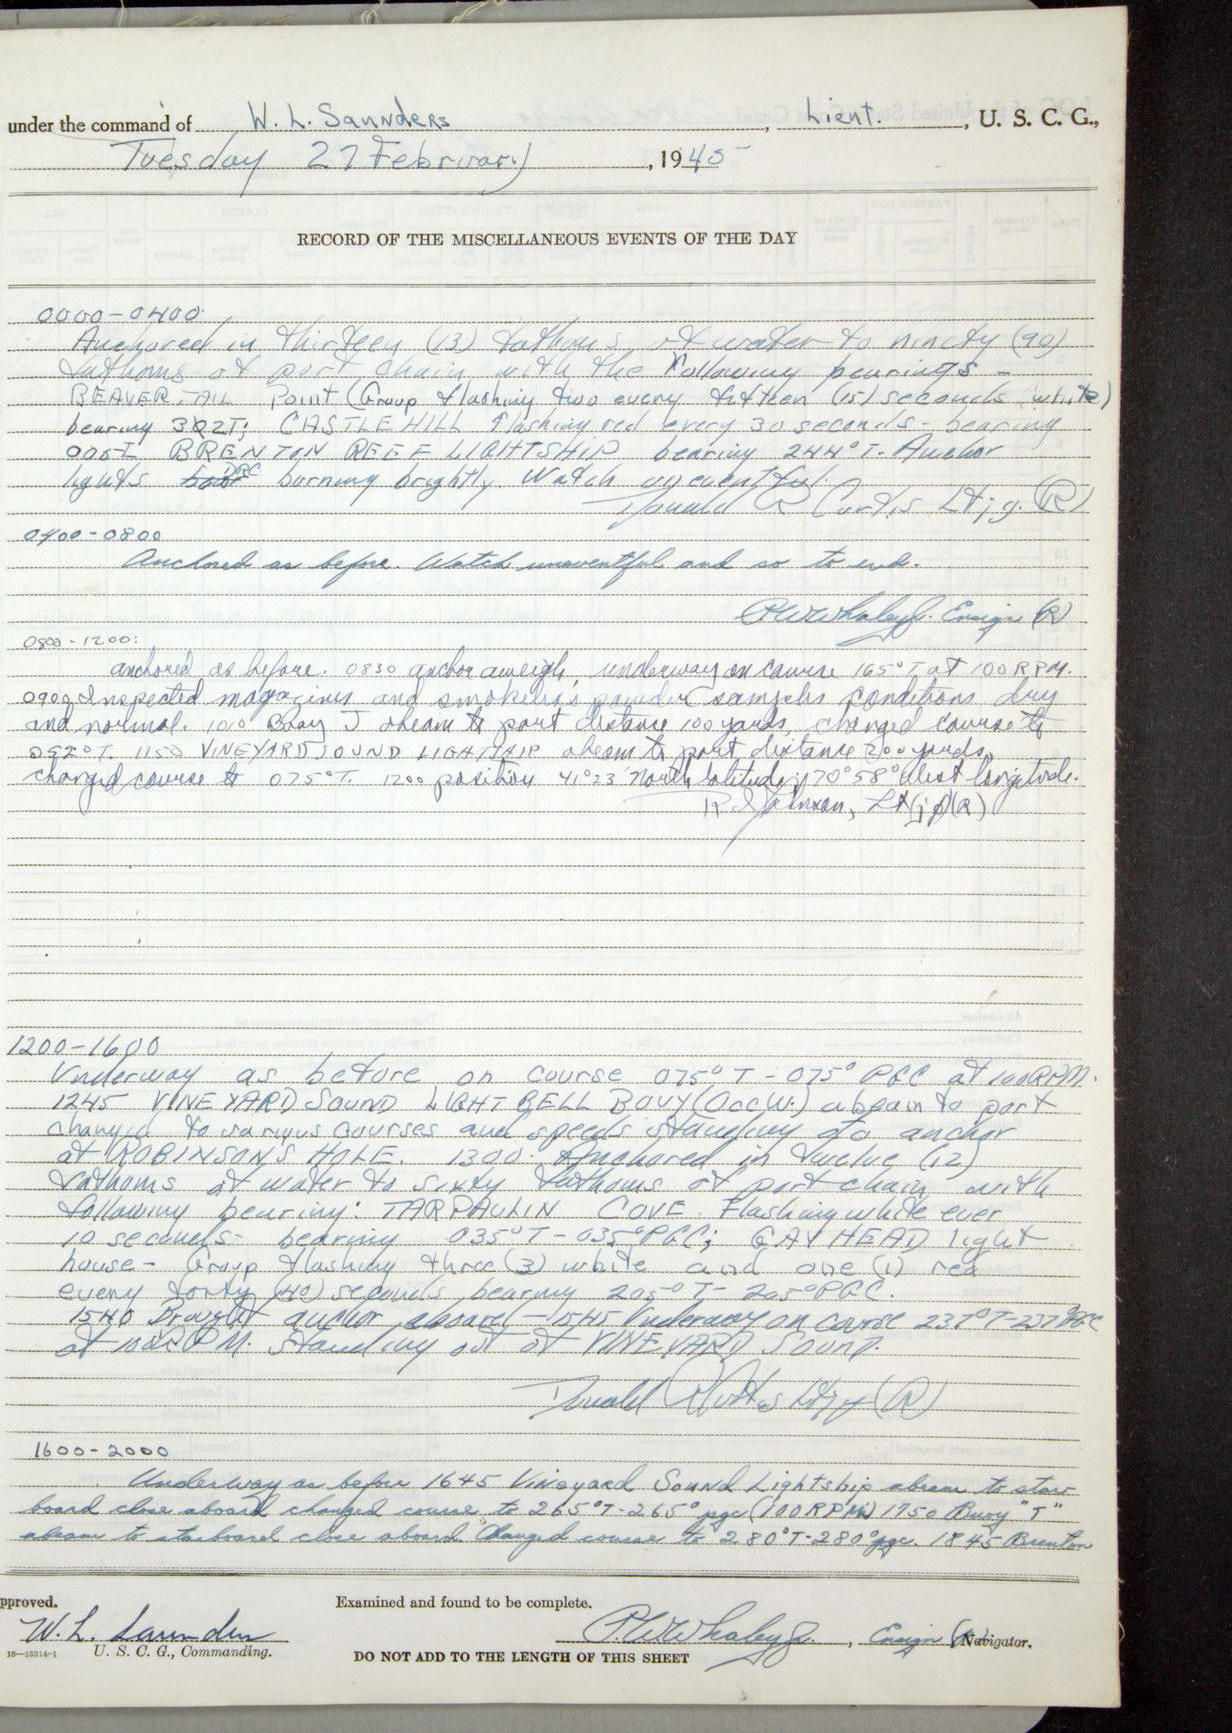 under the command of W. L. Saunders, Lieut., U. S. C. G.,
Tuesday 27 February, 1945
RECORD OF THE MISCELLANEOUS EVENTS OF THE DAY
0000-0400
Anchored in thirteen (13) fathoms of water to ninety (90)
fathoms of port chain with the following bearings -
BEAVER TAIL Point (Group flashing two every fifteen (15) seconds (white)
bearing 302T; CASTLE HILL flashing red every 30 seconds - bearing
005T BRENTON REEF LIGHTSHIP bearing 244°T. Anchor
lights burning brightly. Watch uneventful.
Donald R Curtis Lt; j.g. (R)
0400-0800
Anchored as before. Watch uneventful and so to end.
P.W. Whaley Jr. Ensign (R)
0800-1200:
anchored as before. 0830 anchor aweigh, underway on course 165°T at 100 RPM.
0900 Inspected magazines and smokeless powder samples conditions dry
and normal. 1010 Buoy J abeam to port distance 100 yards, changed course to
052°T. 1150 VINEYARD SOUND LIGHTSHIP abeam to port distance 200 yards,
changed course to 075°T. 1200 position 41°23' North latitude; 70°58' West longitude.
Johnson, Lt(jg)(R)
1200-1600
Underway as before on course 075°T - 075° PGC at 100 RPM.
1245 VINEYARD SOUND LIGHT BELL BOUY (Occ W.) abeam to port
changed to various courses and speeds standing to anchor
at ROBINSONS HOLE. 1300: Anchored in twelve (12)
fathoms of water to sixty fathoms of port chain with
following bearing: TARPAULIN COVE Flashing white ever
10 seconds - bearing 035°T - 035°PGC; GAY HEAD light
house - Group flashing three (3) white and one (1) red
every forty (40) seconds bearing 205°T - 205°PGC.
1540 Brought anchor aboard - 1545 Underway on course 237°T-237°PGC
at 100 RPM. Standing out of VINEYARD SOUND.
Donald R Curtis Lt; jg (R)
1600-2000
Underway as before 1645 Vineyard Sound Lightship abeam to star
board close aboard changed course to 265°T-265° pgc (100 RPM) 1750 Buoy "T"
abeam to starboard close aboard. Changed course to 280°T-280°pgc. 1845 Brenton
pproved.
Examined and found to be complete.
W. L. Saunders
P.W. Whaley Jr., Ensign (R) Navigator.
16-13314-1 U. S. C. G., Commanding.
DO NOT ADD TO THE LENGTH OF THIS SHEET